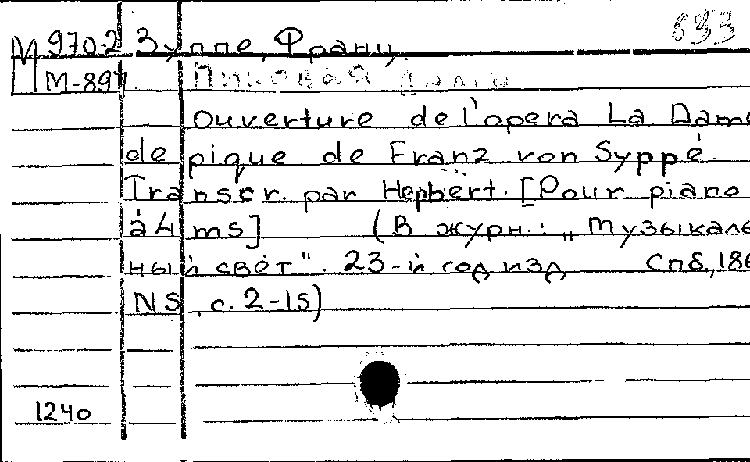 М 970-2 Зуппе, Франц. 693
М-891. Пиковая дама
Ouverture de l'opera La Dame
de pique de Franz von Syppé.
Transcr. par Herbert. [Pour piano
à 4 ms] (В журн.: „Музыкаль
ный свет". 23-й год изд Спб, 186
N5, с. 2-15)
1240